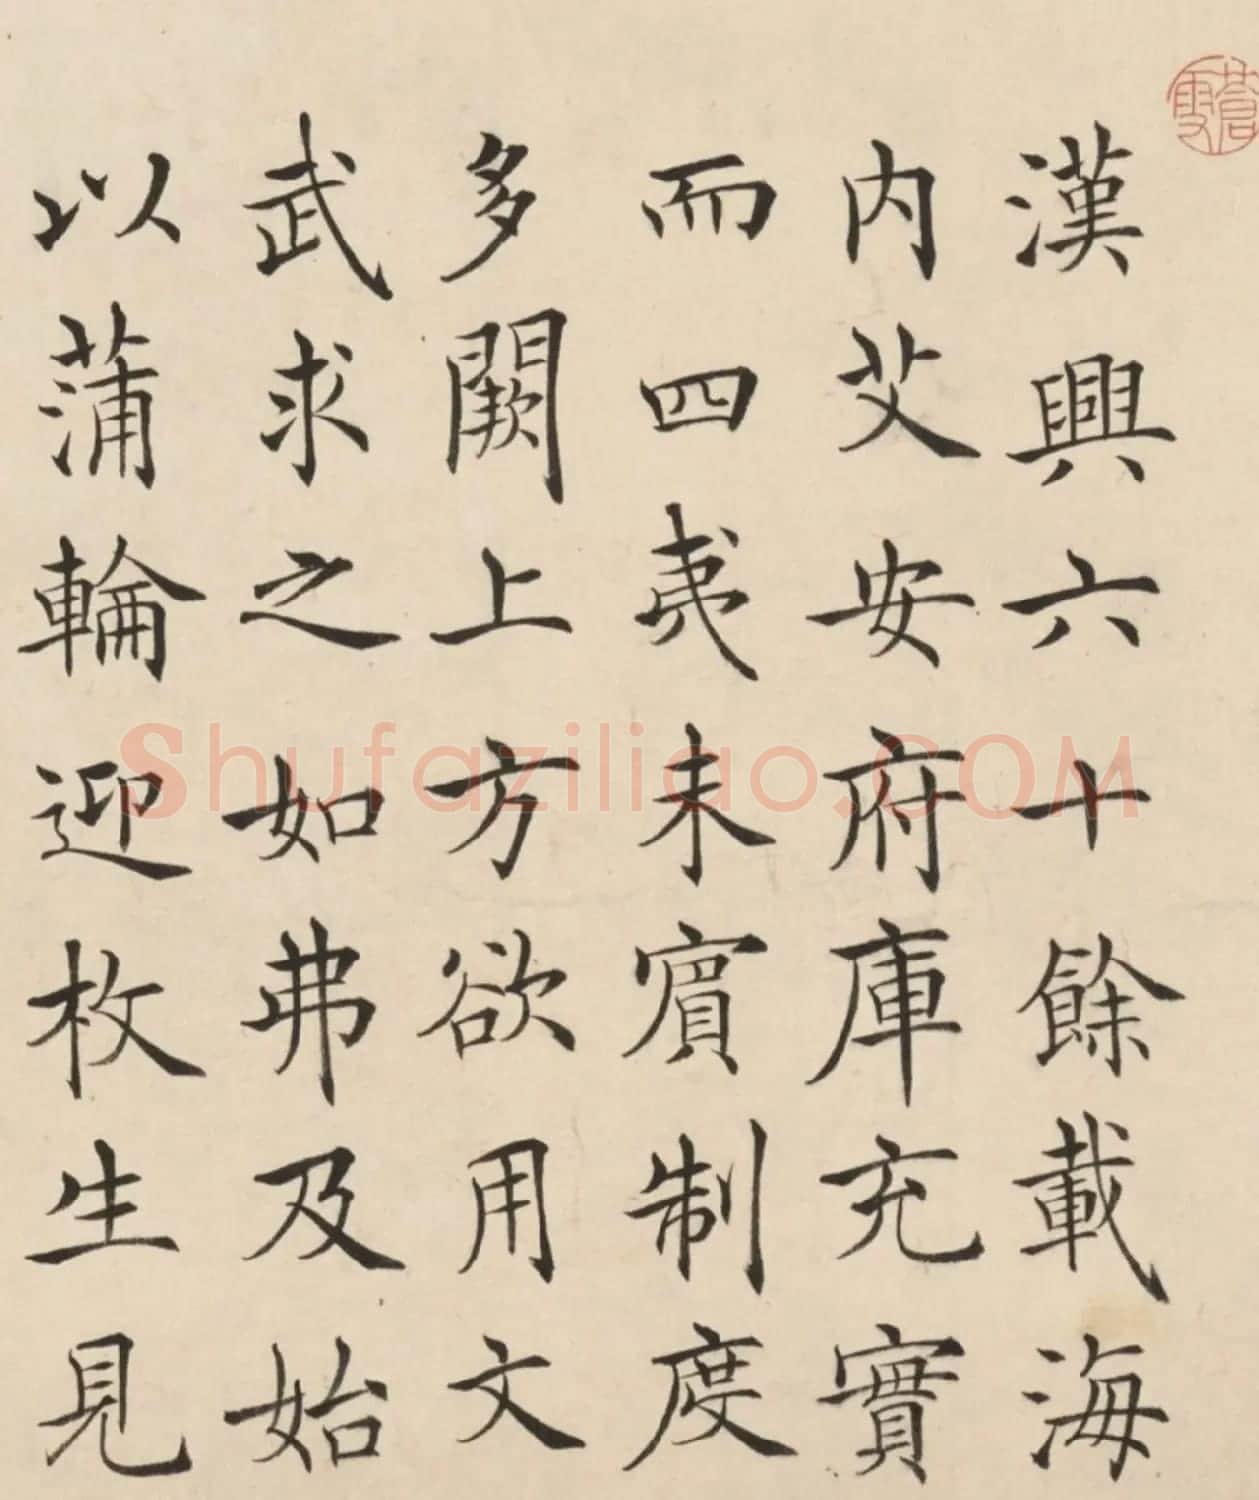 漢興六十餘載海
內艾安府庫充實
而四夷未賓制度
多闕上方欲用文
武求之如弗及始
以蒲輪迎枚生見
Shufaziliao.COM